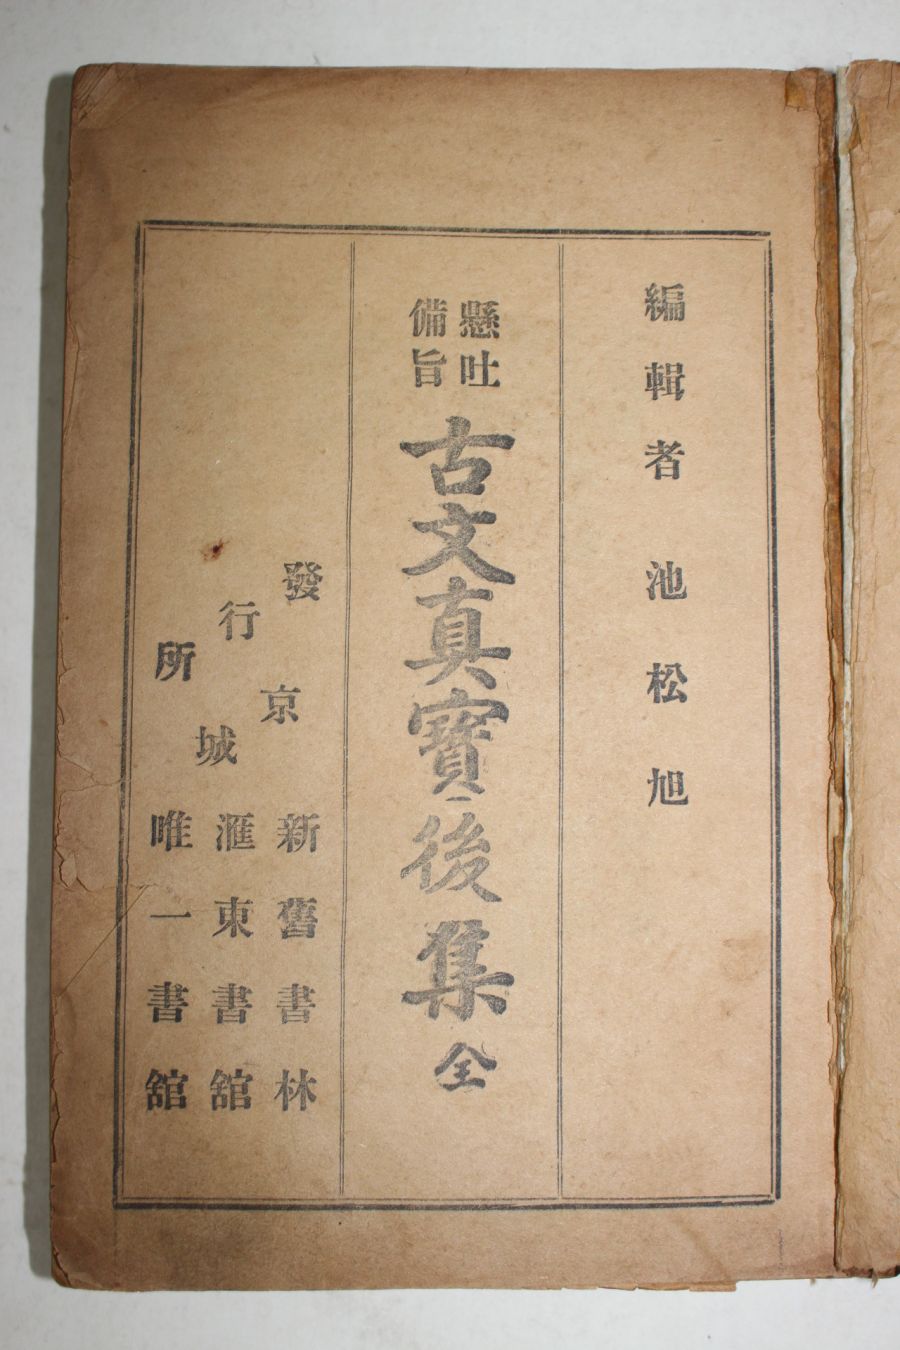 編輯者 池松旭
懸吐
備旨
古文真寶後集 全
發行所
京城
新舊書林
滙東書舘
唯一書舘